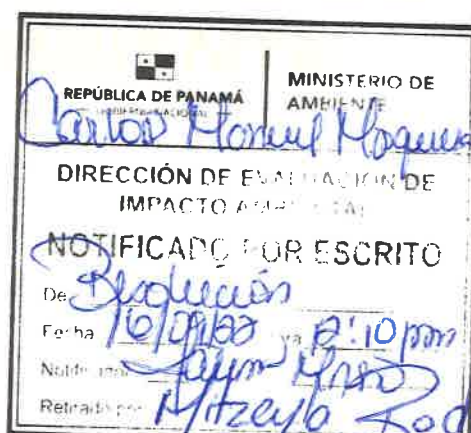 REPÚBLICA DE PANAMÁ
GOBIERNO NACIONAL
MINISTERIO DE
AMBIENTE
Carlos Manuel
DIRECCIÓN DE EVALUACIÓN DE
IMPACTO AMBIENTAL
NOTIFICADO POR ESCRITO
De Resolución
Fecha Hora 2:10 pm
Retirado por Mitzeyla